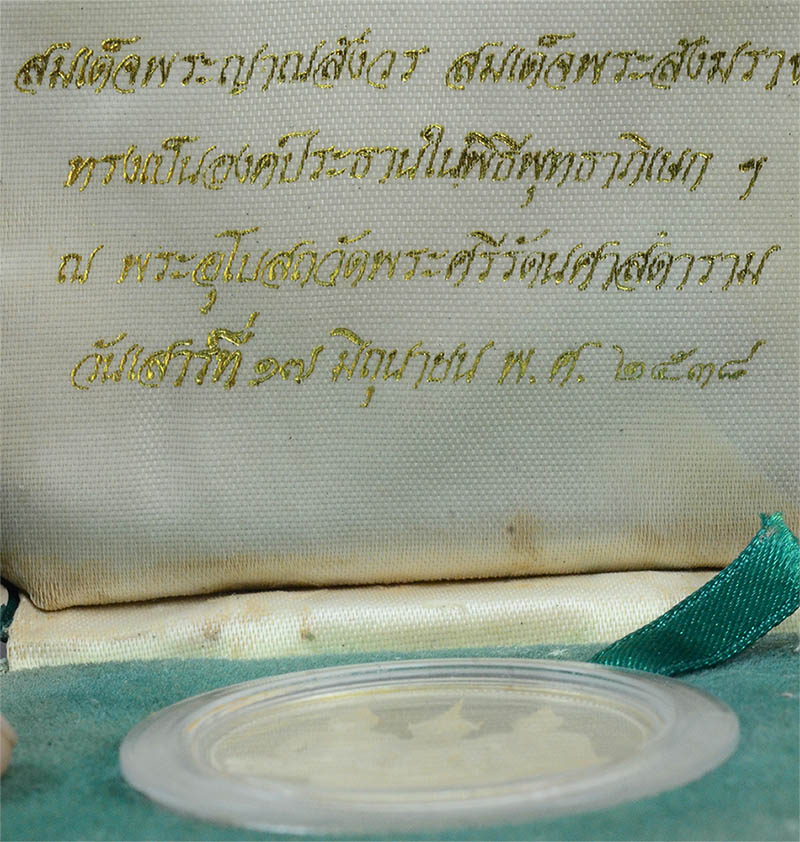 สมเด็จพระญาณสังวร สมเด็จพระสังฆราช
ทรงเป็นองค์ประธานในพิธีพุทธาภิเษก ฯ
ณ พระอุโบสถวัดพระศรีรัตนศาสดาราม
วันเสาร์ที่ ๑๗ มิถุนายน พ.ศ. ๒๕๓๘